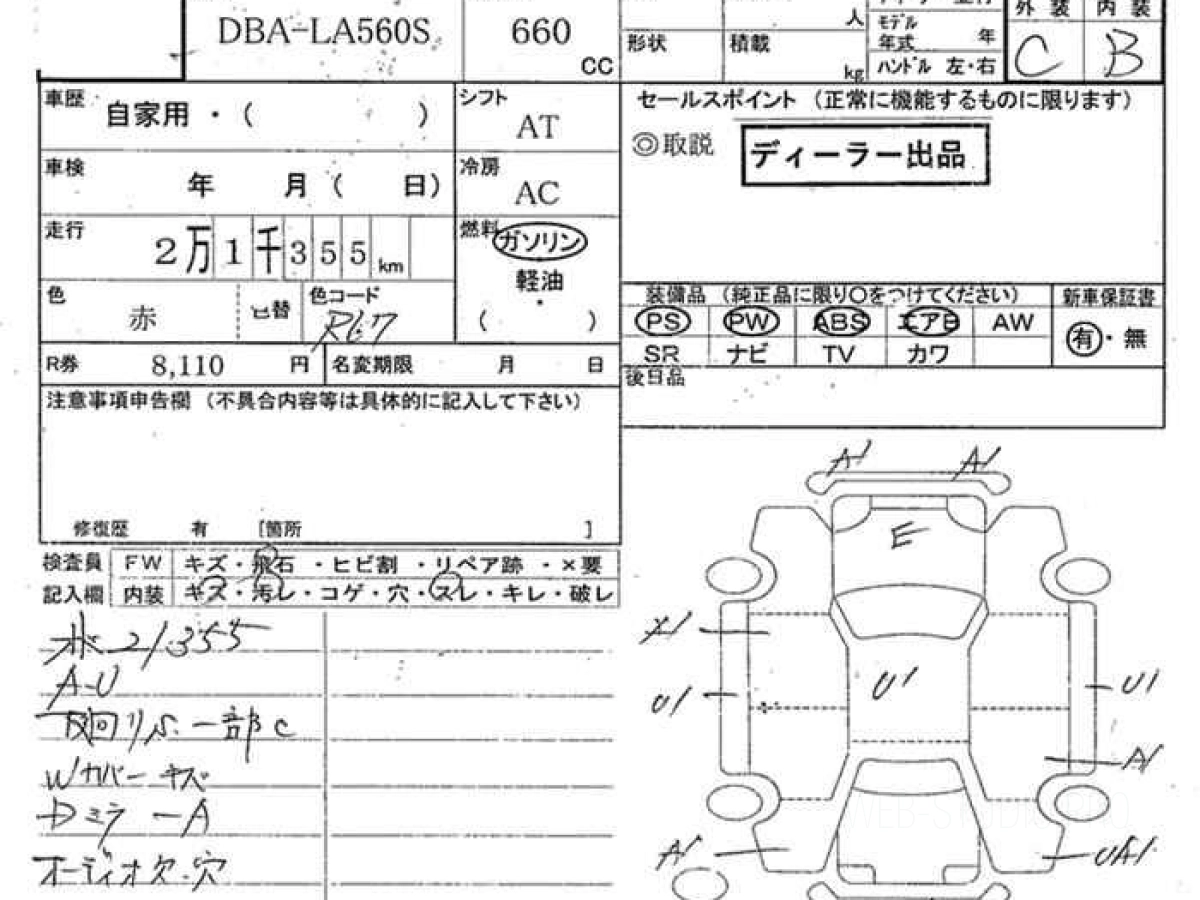 DBA-LA560S 660 CC
人
形状 積載 kg
モデル年式 年
ハンドル 左・右
外装 内装
C B
車歴 自家用・( )
シフト AT
セールスポイント (正常に機能するものに限ります)
◎取説 ディーラー出品
車検 年 月( 日)
冷房 AC
走行 2万1千355km
燃料 ガソリン
軽油
・
( )
色 赤
色替
色コード R67
装備品 (純正品に限り○をつけてください) 新車保証書
PS PW ABS エアB AW
SR ナビ TV カワ
有・無
R券 8,110 円 名変期限 月 日
後日品
注意事項申告欄 (不具合内容等は具体的に記入して下さい)
修復歴 有 [箇所 ]
検査員記入欄
FW キズ・飛石・ヒビ割・リペア跡・×要
内装 キズ・汚レ・コゲ・穴・スレ・キレ・破レ
21355
A-U
下廻りS.一部C
Wカバーキズ
Dミラ-A
オーディオ欠.穴
A1 A1
E
X1
U1 U1 U1
A1
A1 UA1